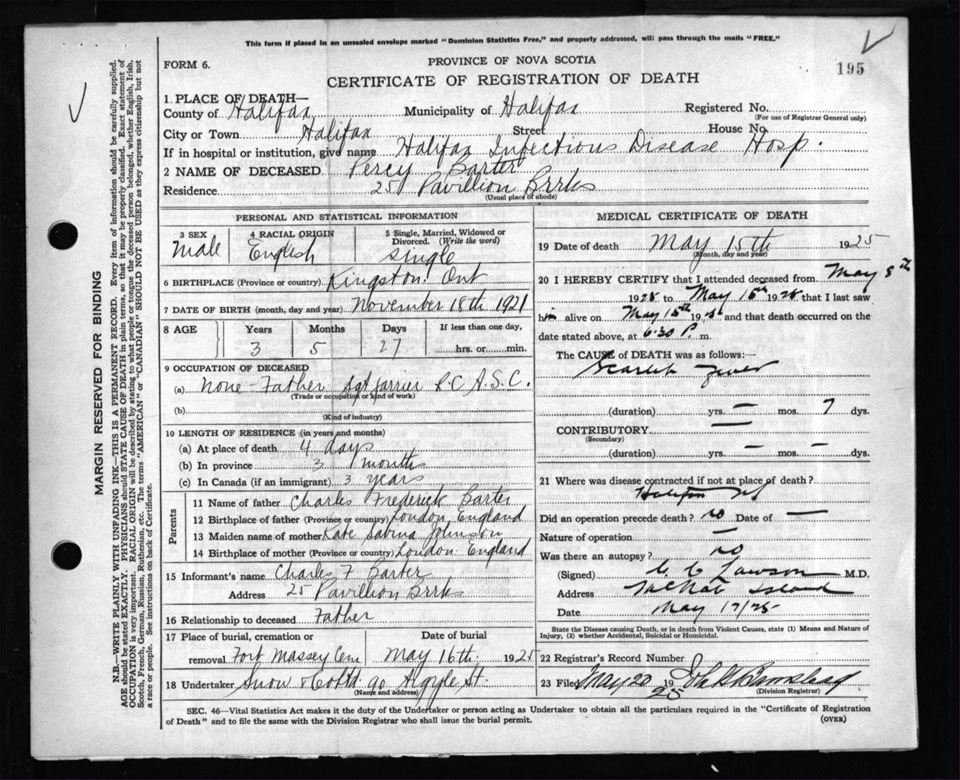 This form if placed in an unsealed envelope marked "Dominion Statistics Free," and properly addressed, will pass through the mails "FREE."
FORM 6.
PROVINCE OF NOVA SCOTIA
195
CERTIFICATE OF REGISTRATION OF DEATH
1. PLACE OF DEATH—
County of Halifax Municipality of Halifax Registered No.
(For use of Registrar General only)
City or Town Halifax Street House No.
If in hospital or institution, give name Halifax Infectious Disease Hosp.
2 NAME OF DECEASED Percy Barter
Residence 25 Pavillion Brrks
(Usual place of abode)
MARGIN RESERVED FOR BINDING
N.B.—WRITE PLAINLY WITH UNFADING INK—THIS IS A PERMANENT RECORD. Every item of information should be carefully supplied.
AGE should be stated EXACTLY. PHYSICIANS should STATE CAUSE OF DEATH in plain terms, so that it may be properly classified. Exact statement of
OCCUPATION is very important. RACIAL ORIGIN will be described by stating to what people or tongue the deceased person belonged, whether English, Irish,
Scotch, French, German, Russian, Ruthenian, etc. The terms "AMERICAN" or "CANADIAN" SHOULD NOT BE USED as they express citizenship but not
a race or people. See instructions on back of Certificate.
PERSONAL AND STATISTICAL INFORMATION
3 SEX
Male
4 RACIAL ORIGIN
English
5 Single, Married, Widowed or
Divorced. (Write the word)
Single
6 BIRTHPLACE (Province or country) Kingston Ont
7 DATE OF BIRTH (month, day and year) November 18th 1921
8 AGE Years Months Days If less than one day,
3 5 27 hrs. or min.
9 OCCUPATION OF DECEASED
(a) None - Father Sgt farrier R C A.S.C.
(Trade or occupation or kind of work)
(b)
(Kind of industry)
10 LENGTH OF RESIDENCE (in years and months)
(a) At place of death 4 days
(b) In province 3 months
(c) In Canada (if an immigrant) 3 years
Parents
11 Name of father Charles Frederick Barter
12 Birthplace of father (Province or country) London, England
13 Maiden name of mother Kate Sabina Johnston
14 Birthplace of mother (Province or country) London England
15 Informant's name Charles F Barter
Address 25 Pavillion Brrks
16 Relationship to deceased Father
17 Place of burial, cremation or Date of burial
removal Fort Massey Cem May 16th 1925
18 Undertaker Snow & Co Ltd 90 Argyle St.
(Name and address)
MEDICAL CERTIFICATE OF DEATH
19 Date of death May 15th 1925
(Month, day and year)
20 I HEREBY CERTIFY that I attended deceased from May 8th
1925 to May 15th 1925 that I last saw
him alive on May 15th 1925 and that death occurred on the
date stated above, at 6.30 P. m.
The CAUSE of DEATH was as follows:—
Scarlet Fever
(duration) yrs. — mos. 7 dys.
CONTRIBUTORY —
(Secondary)
(duration) yrs. — mos. — dys.
21 Where was disease contracted if not at place of death?
Halifax NS
Did an operation precede death? no Date of —
Nature of operation —
Was there an autopsy? no
(Signed) Lawson M.D.
Address McNab Island
Date May 17/25
State the Disease causing Death, or in death from Violent Causes, state (1) Means and Nature of
Injury, (2) whether Accidental, Suicidal or Homicidal.
22 Registrar's Record Number
23 Filed May 20 1925
(Division Registrar)
SEC. 46—Vital Statistics Act makes it the duty of the Undertaker or person acting as Undertaker to obtain all the particulars required in the "Certificate of Registration
of Death" and to file the same with the Division Registrar who shall issue the burial permit.
(OVER)